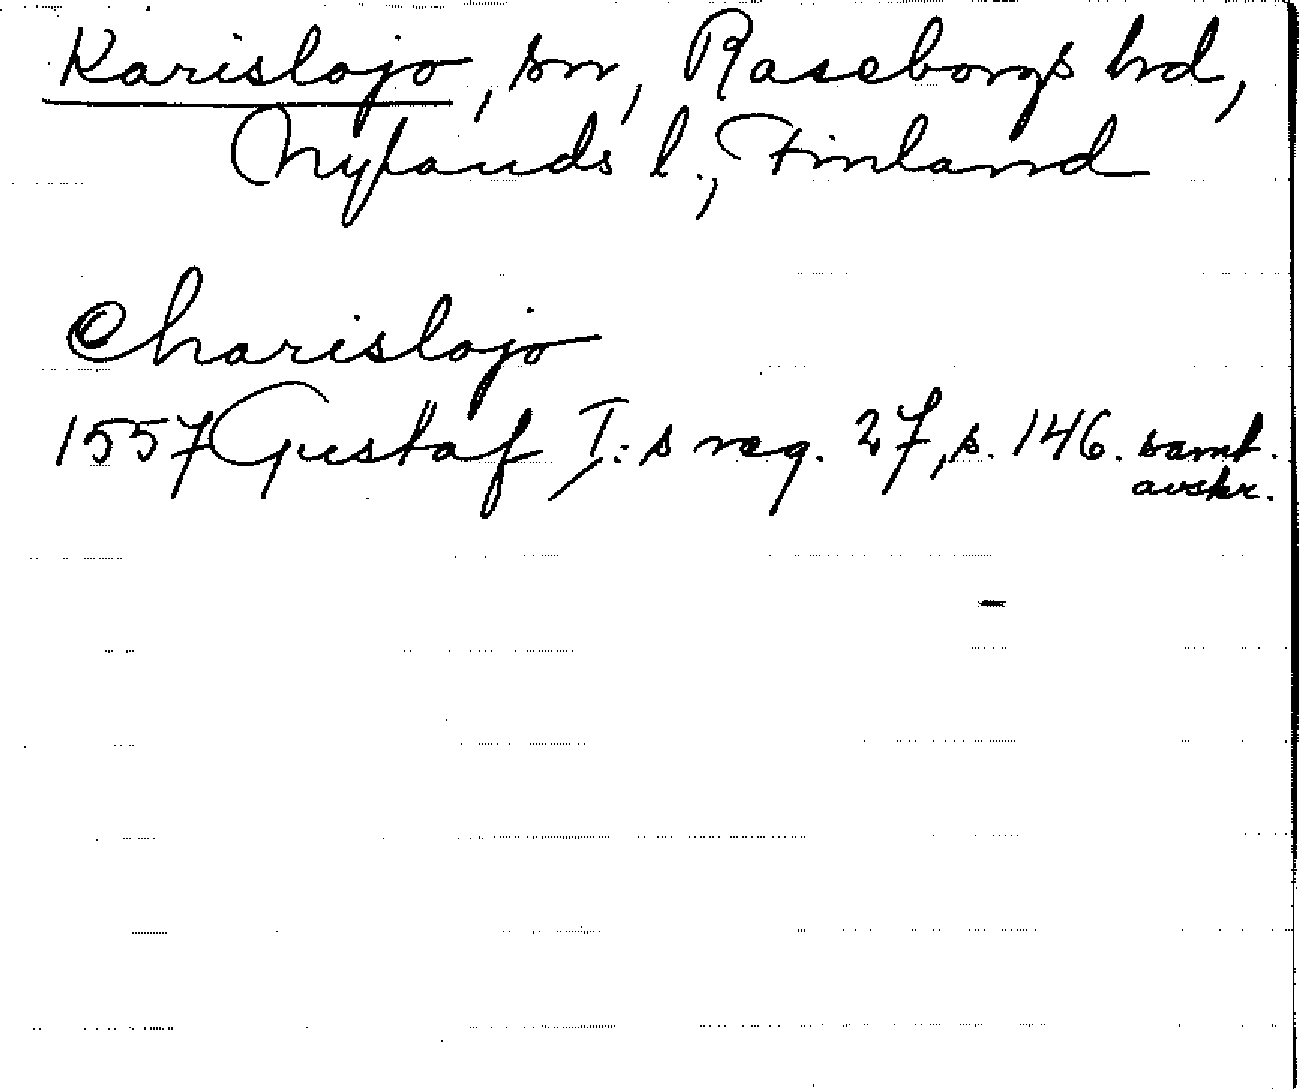 Karislojo, sn, Raseborgs hrd,
Nylands l., Finland
Charislojo
1557 Gustaf I:s reg. 27, s. 146. samt.
avskr.